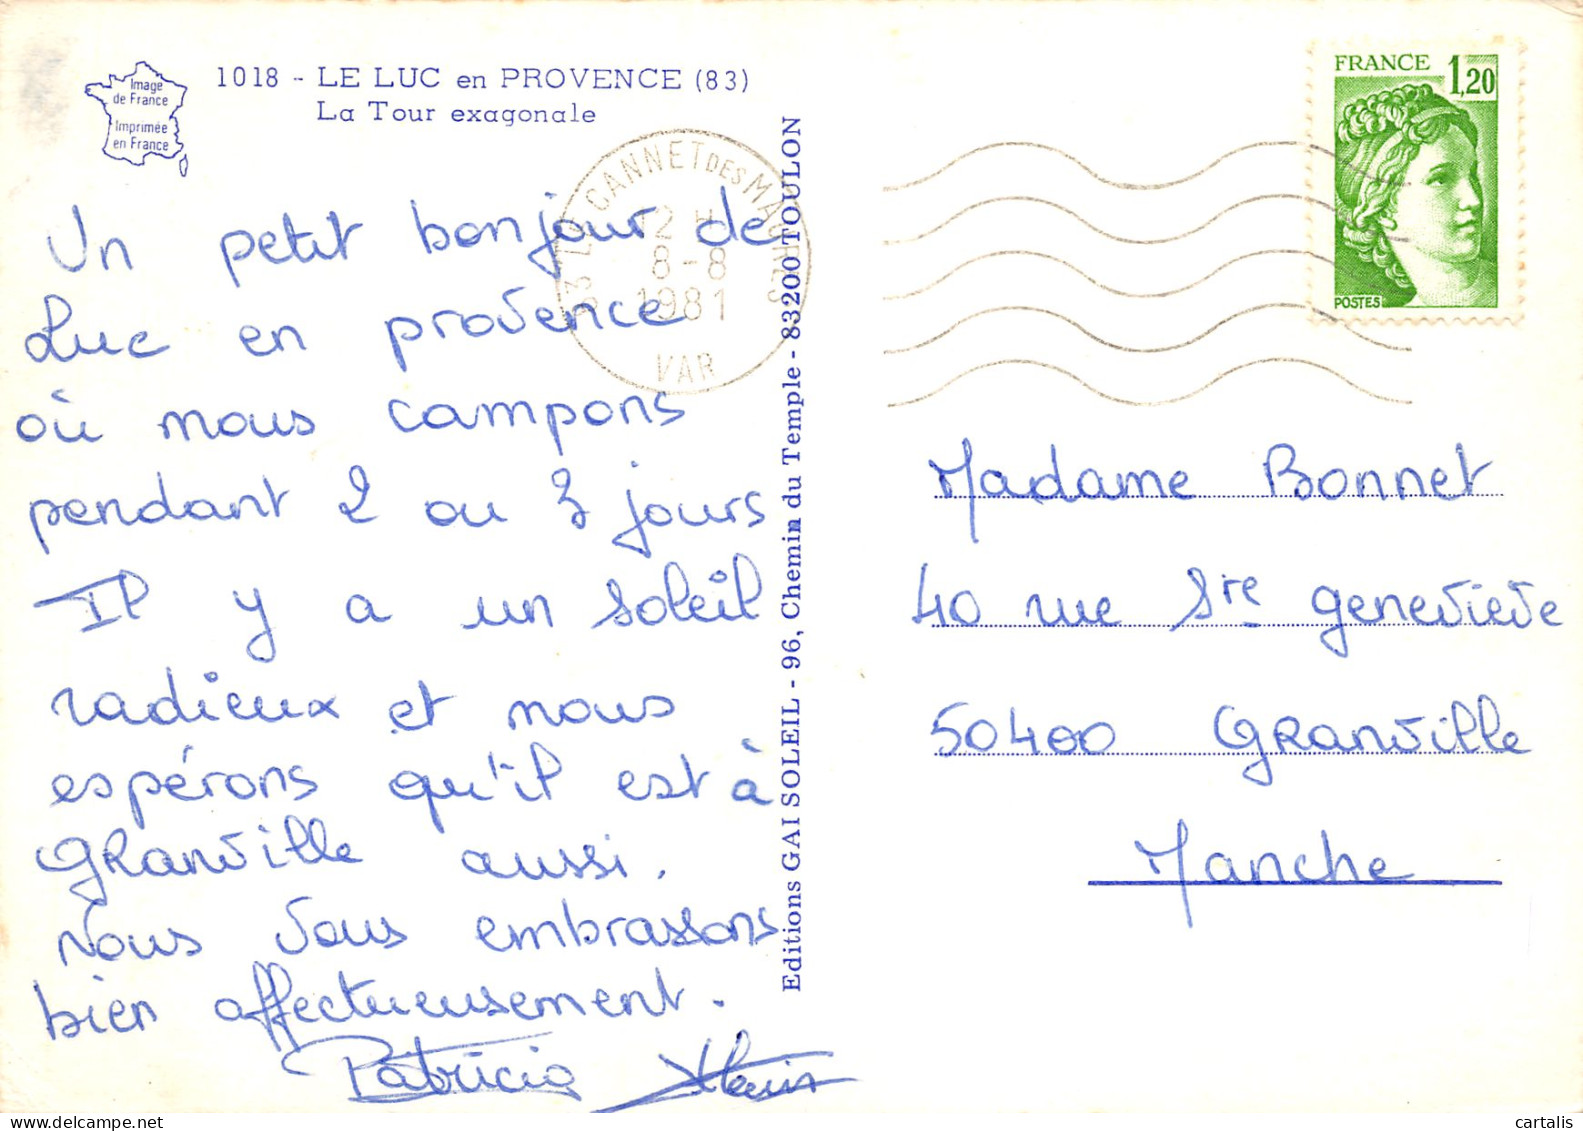 Image
de France
Imprimée
en France
1018 - LE LUC en PROVENCE (83)
La Tour exagonale
Un petit bonjour de
Luc en provence
où nous campons
pendant 2 ou 3 jours
Il y a un soleil
radieux et nous
espérons qu'il est à
Granville aussi.
Nous vous embrassons
bien affectueusement.
Patricia Alain
83 LE CANNET DES MAURES
12 H
8-8
1981
VAR
Editions GAI SOLEIL - 96, Chemin du Temple - 83200 TOULON
FRANCE 1,20
POSTES
Madame Bonnet
40 rue Ste geneviève
50400 Granville
Manche
cartalis